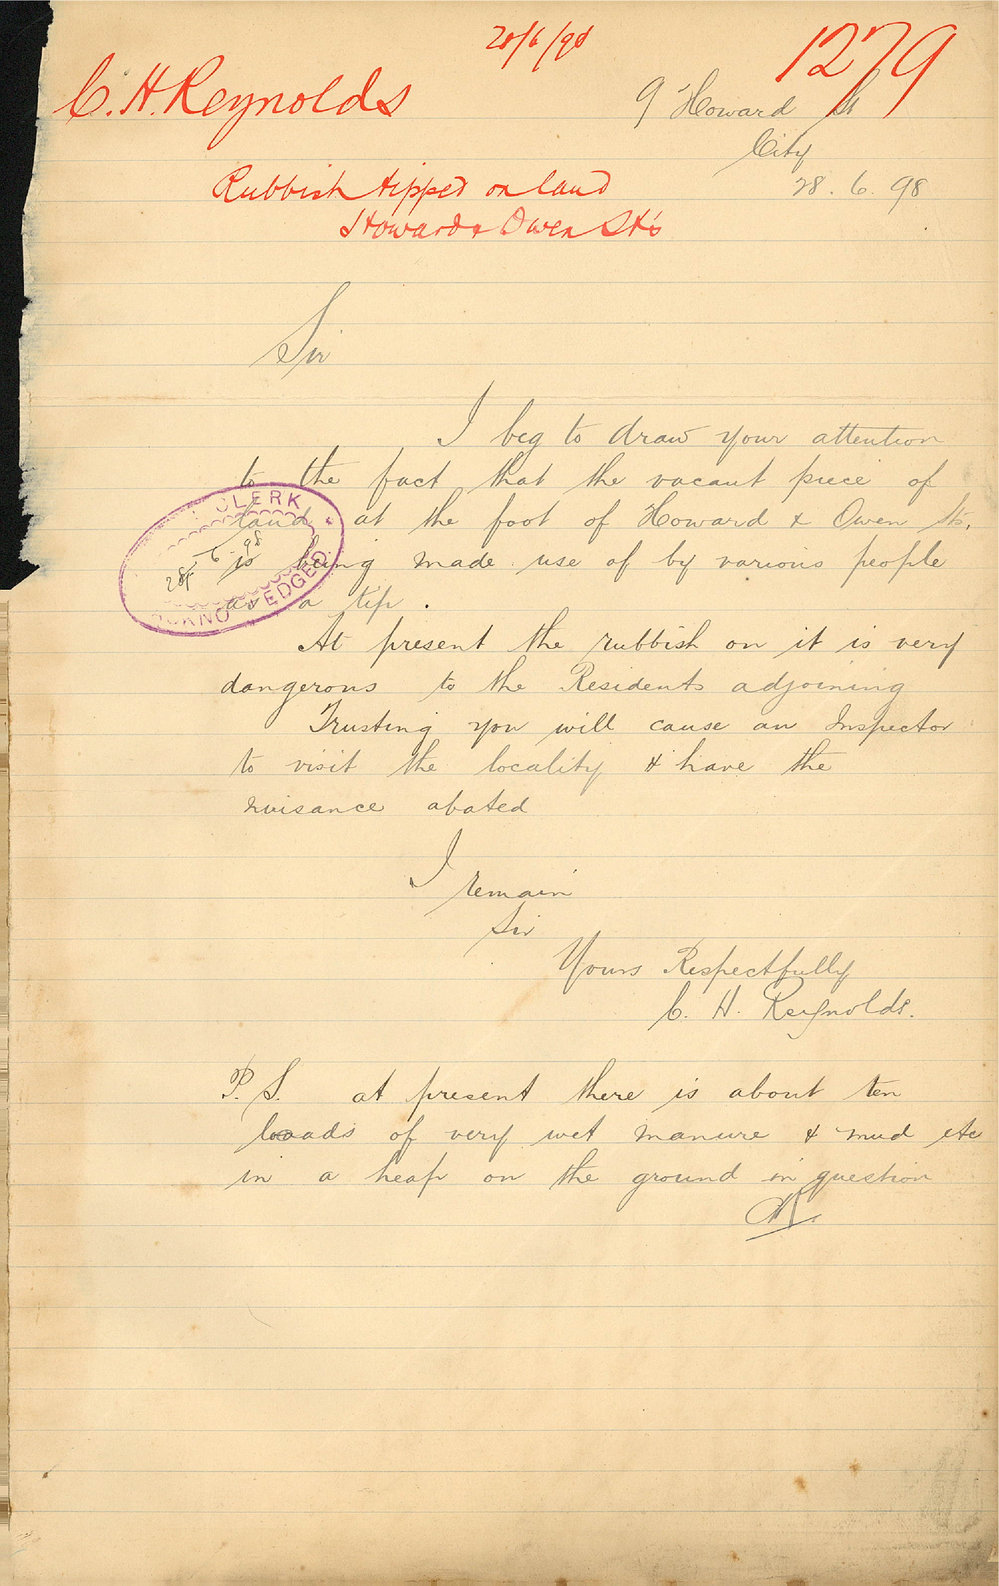 28/6/98
1279
C. H. Reynolds
9 Howard St
City
28. 6. 98
Rubbish tipped on land
Howard & Owen Sts
Sir
I beg to draw your attention
to the fact that the vacant piece of
land at the foot of Howard & Owen Sts.
is being made use of by various people
as a tip.
At present the rubbish on it is very
dangerous to the Residents adjoining
Trusting you will cause an Inspector
to visit the locality & have the
nuisance abated
I remain
Sir
Yours Respectfully
C. H. Reynolds.
P.S. at present there is about ten
loads of very wet manure & mud etc
in a heap on the ground in question
CHR.
CLERK
28-6-98
ACKNOWLEDGED.